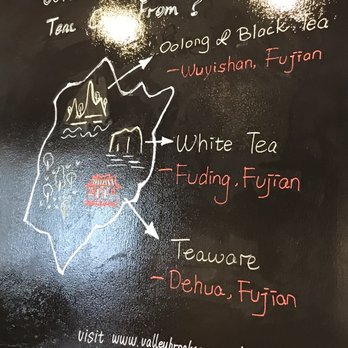 Tea From?
Oolong & Black Tea
- Wuyishan, Fujian
White Tea
- Fuding, Fujian
Teaware
- Dehua, Fujian
visit www.valleybrook